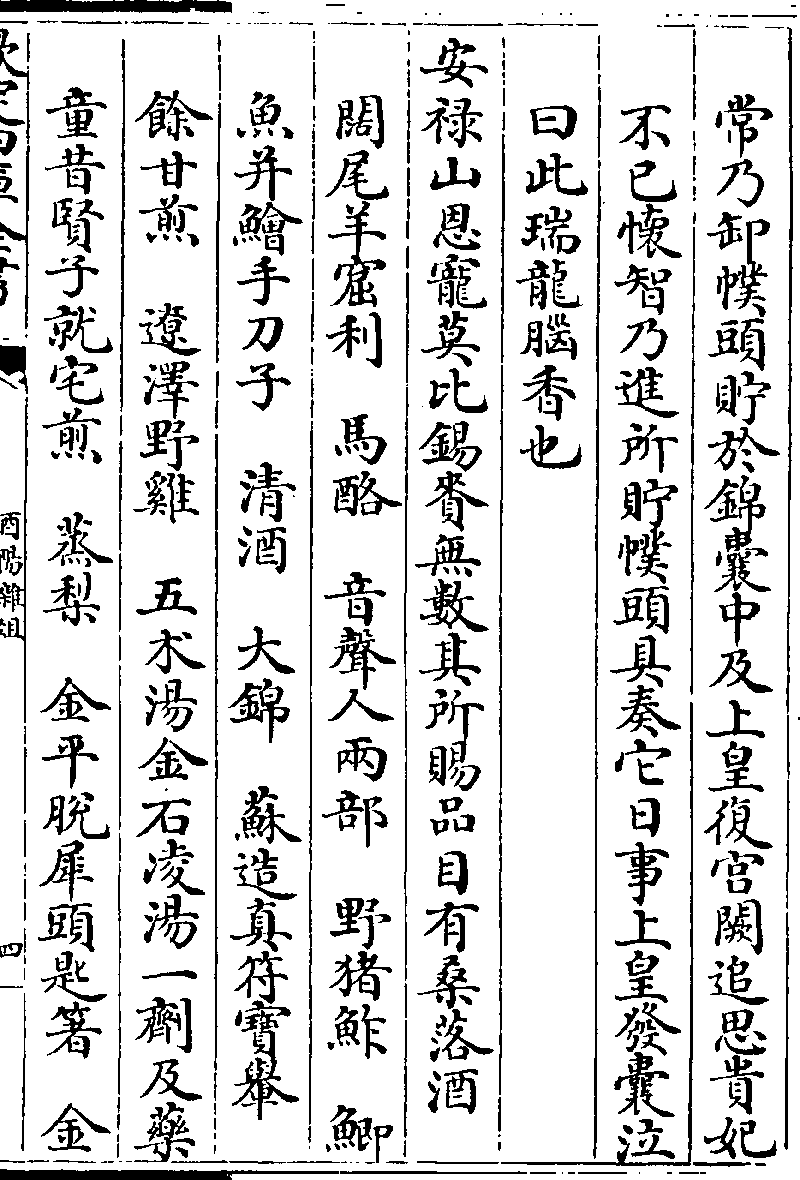 常乃卸幞頭貯於錦囊中及上皇復宮闕追思貴妃
不已懷智乃進所貯幞頭具奏它日事上皇發囊泣
曰此瑞龍腦香也
安禄山恩寵莫比錫賚無數其所賜品目有桑落酒
闊尾羊窟利　馬酪　音聲人兩部　野猪鮓　鯽
魚并鱠手刀子　清酒　大錦　蘇造真符寶轝
餘甘煎　遼澤野雞　五朮湯金石凌湯一劑及藥
童昔賢子就宅煎　蒸梨　金平脫犀頭匙箸　金
欽定四庫全書
酉陽雜俎
四